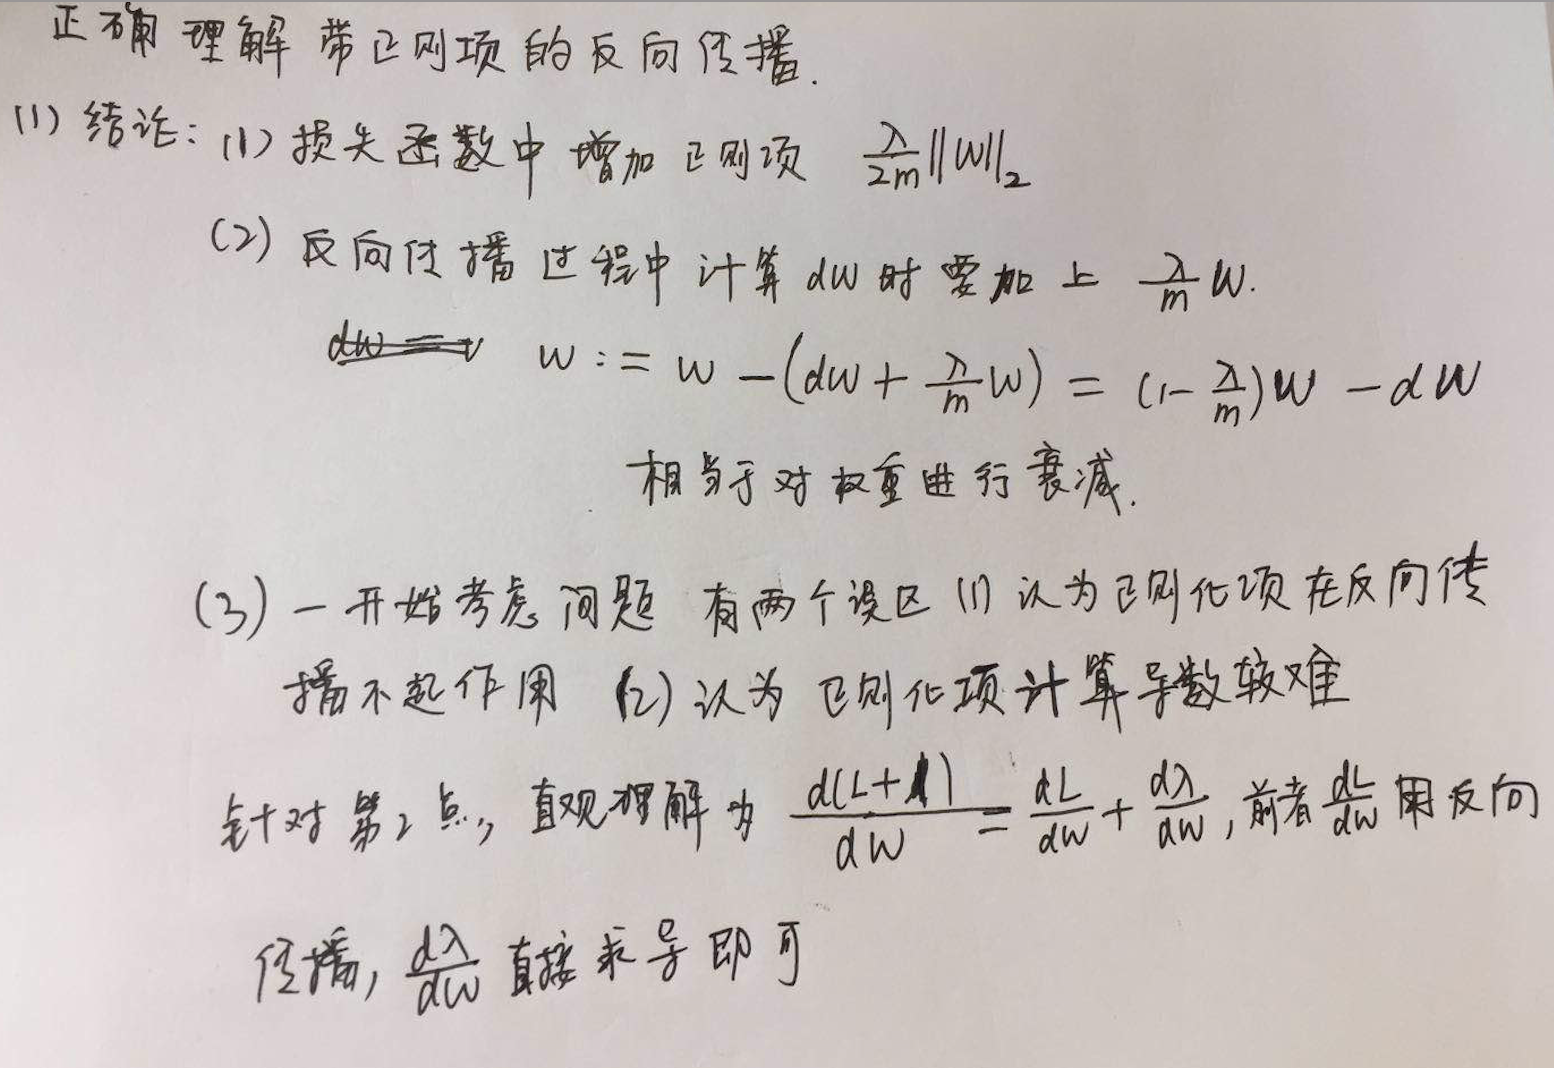 正确理解带正则项的反向传播.
(1) 结论: (1) 损失函数中增加正则项 λ/2m ||W||₂
(2) 反向传播过程中计算dW时要加上 λ/m W.
W := W - (dW + λ/m W) = (1 - λ/m)W - dW
相当于对权重进行衰减.
(3) 一开始考虑问题 有两个误区 (1) 认为正则化项在反向传
播不起作用 (2) 认为正则化项计算导数较难
针对第2点, 直观理解为 d(L+λ)/dW = dL/dW + dλ/dW, 前者 dL/dW 用反向
传播, dλ/dW 直接求导即可